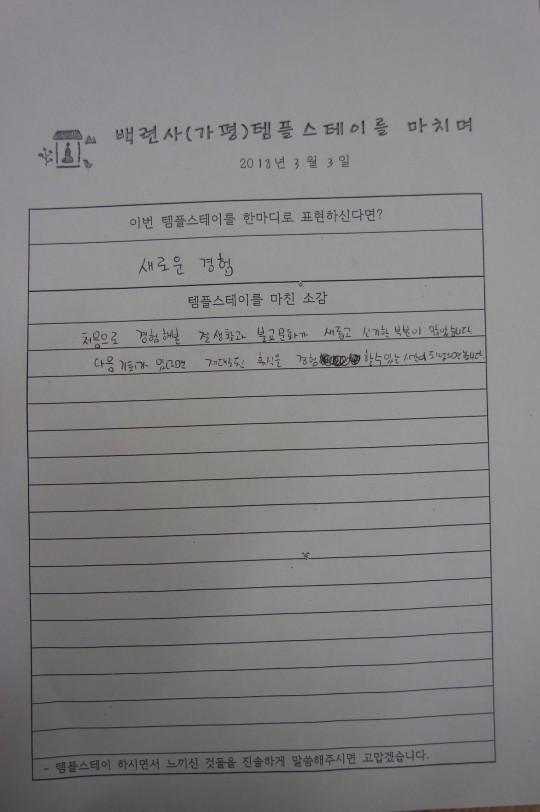 백련사(가평)템플스테이를 마치며
2018년 3월 3일
이번 템플스테이를 한마디로 표현하신다면?
새로운 경험
템플스테이를 마친 소감
처음으로 경험해본 절생활과 불교문화가 새롭고 신기한 부분이 많았습니다
다음 기회가 있다면 제대로된 휴식을 경험 할수있는 시간이 되었으면 합니다
- 템플스테이 하시면서 느끼신 것들을 진솔하게 말씀해주시면 고맙겠습니다.